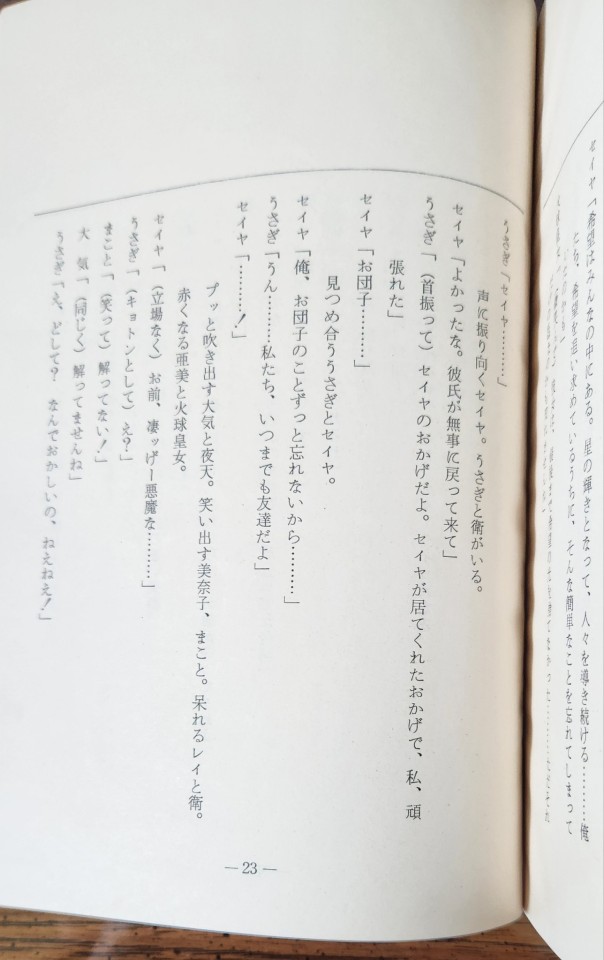 セイヤ「希望はみんなの中にある。星の輝きとなって、人々を導き続ける………俺
たち、希望を追い求めているうちに、そんな簡単なことを忘れてしまって
いたのかも」
うさぎ「セイヤ………」
声に振り向くセイヤ。うさぎと衛がいる。
セイヤ「よかったな。彼氏が無事に戻って来て」
うさぎ「（首振って）セイヤのおかげだよ。セイヤが居てくれたおかげで、私、頑
張れた」
セイヤ「お団子………」
見つめ合ううさぎとセイヤ。
セイヤ「俺、お団子のことずっと忘れないから………」
うさぎ「うん………私たち、いつまでも友達だよ」
セイヤ「………！」
プッと吹き出す大気と夜天。笑い出す美奈子、まこと。呆れるレイと衛。
赤くなる亜美と火球皇女。
セイヤ「（立場なく）お前、凄ッげー悪魔な………」
うさぎ「（キョトンとして）え？」
まこと「（笑って）解ってない！」
大　気「（同じく）解ってませんね」
うさぎ「え、どして？　なんでおかしいの、ねえねえ！」
— 23 —